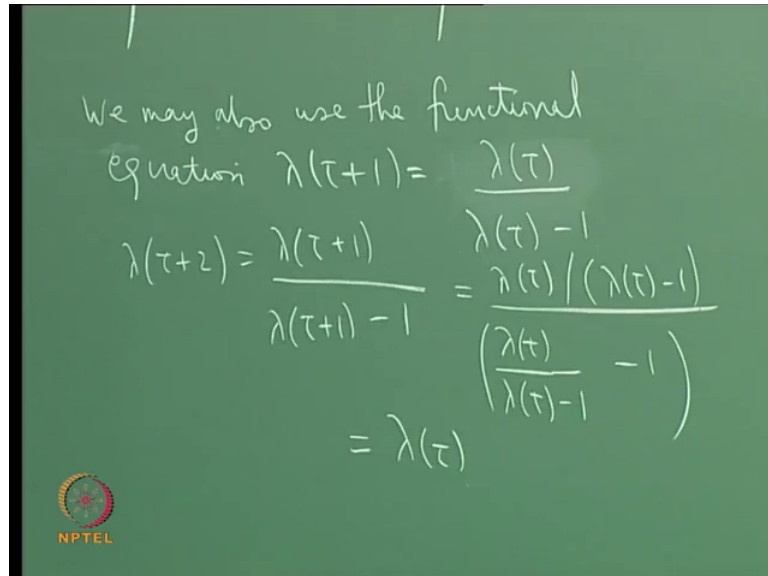 We may also use the functional
equation λ(τ+1) = λ(τ) / λ(τ) - 1
λ(τ+2) = λ(τ+1) / λ(τ+1) - 1 = λ(τ) / (λ(τ)-1) / (λ(τ) / λ(τ)-1 - 1)
= λ(τ)
NPTEL